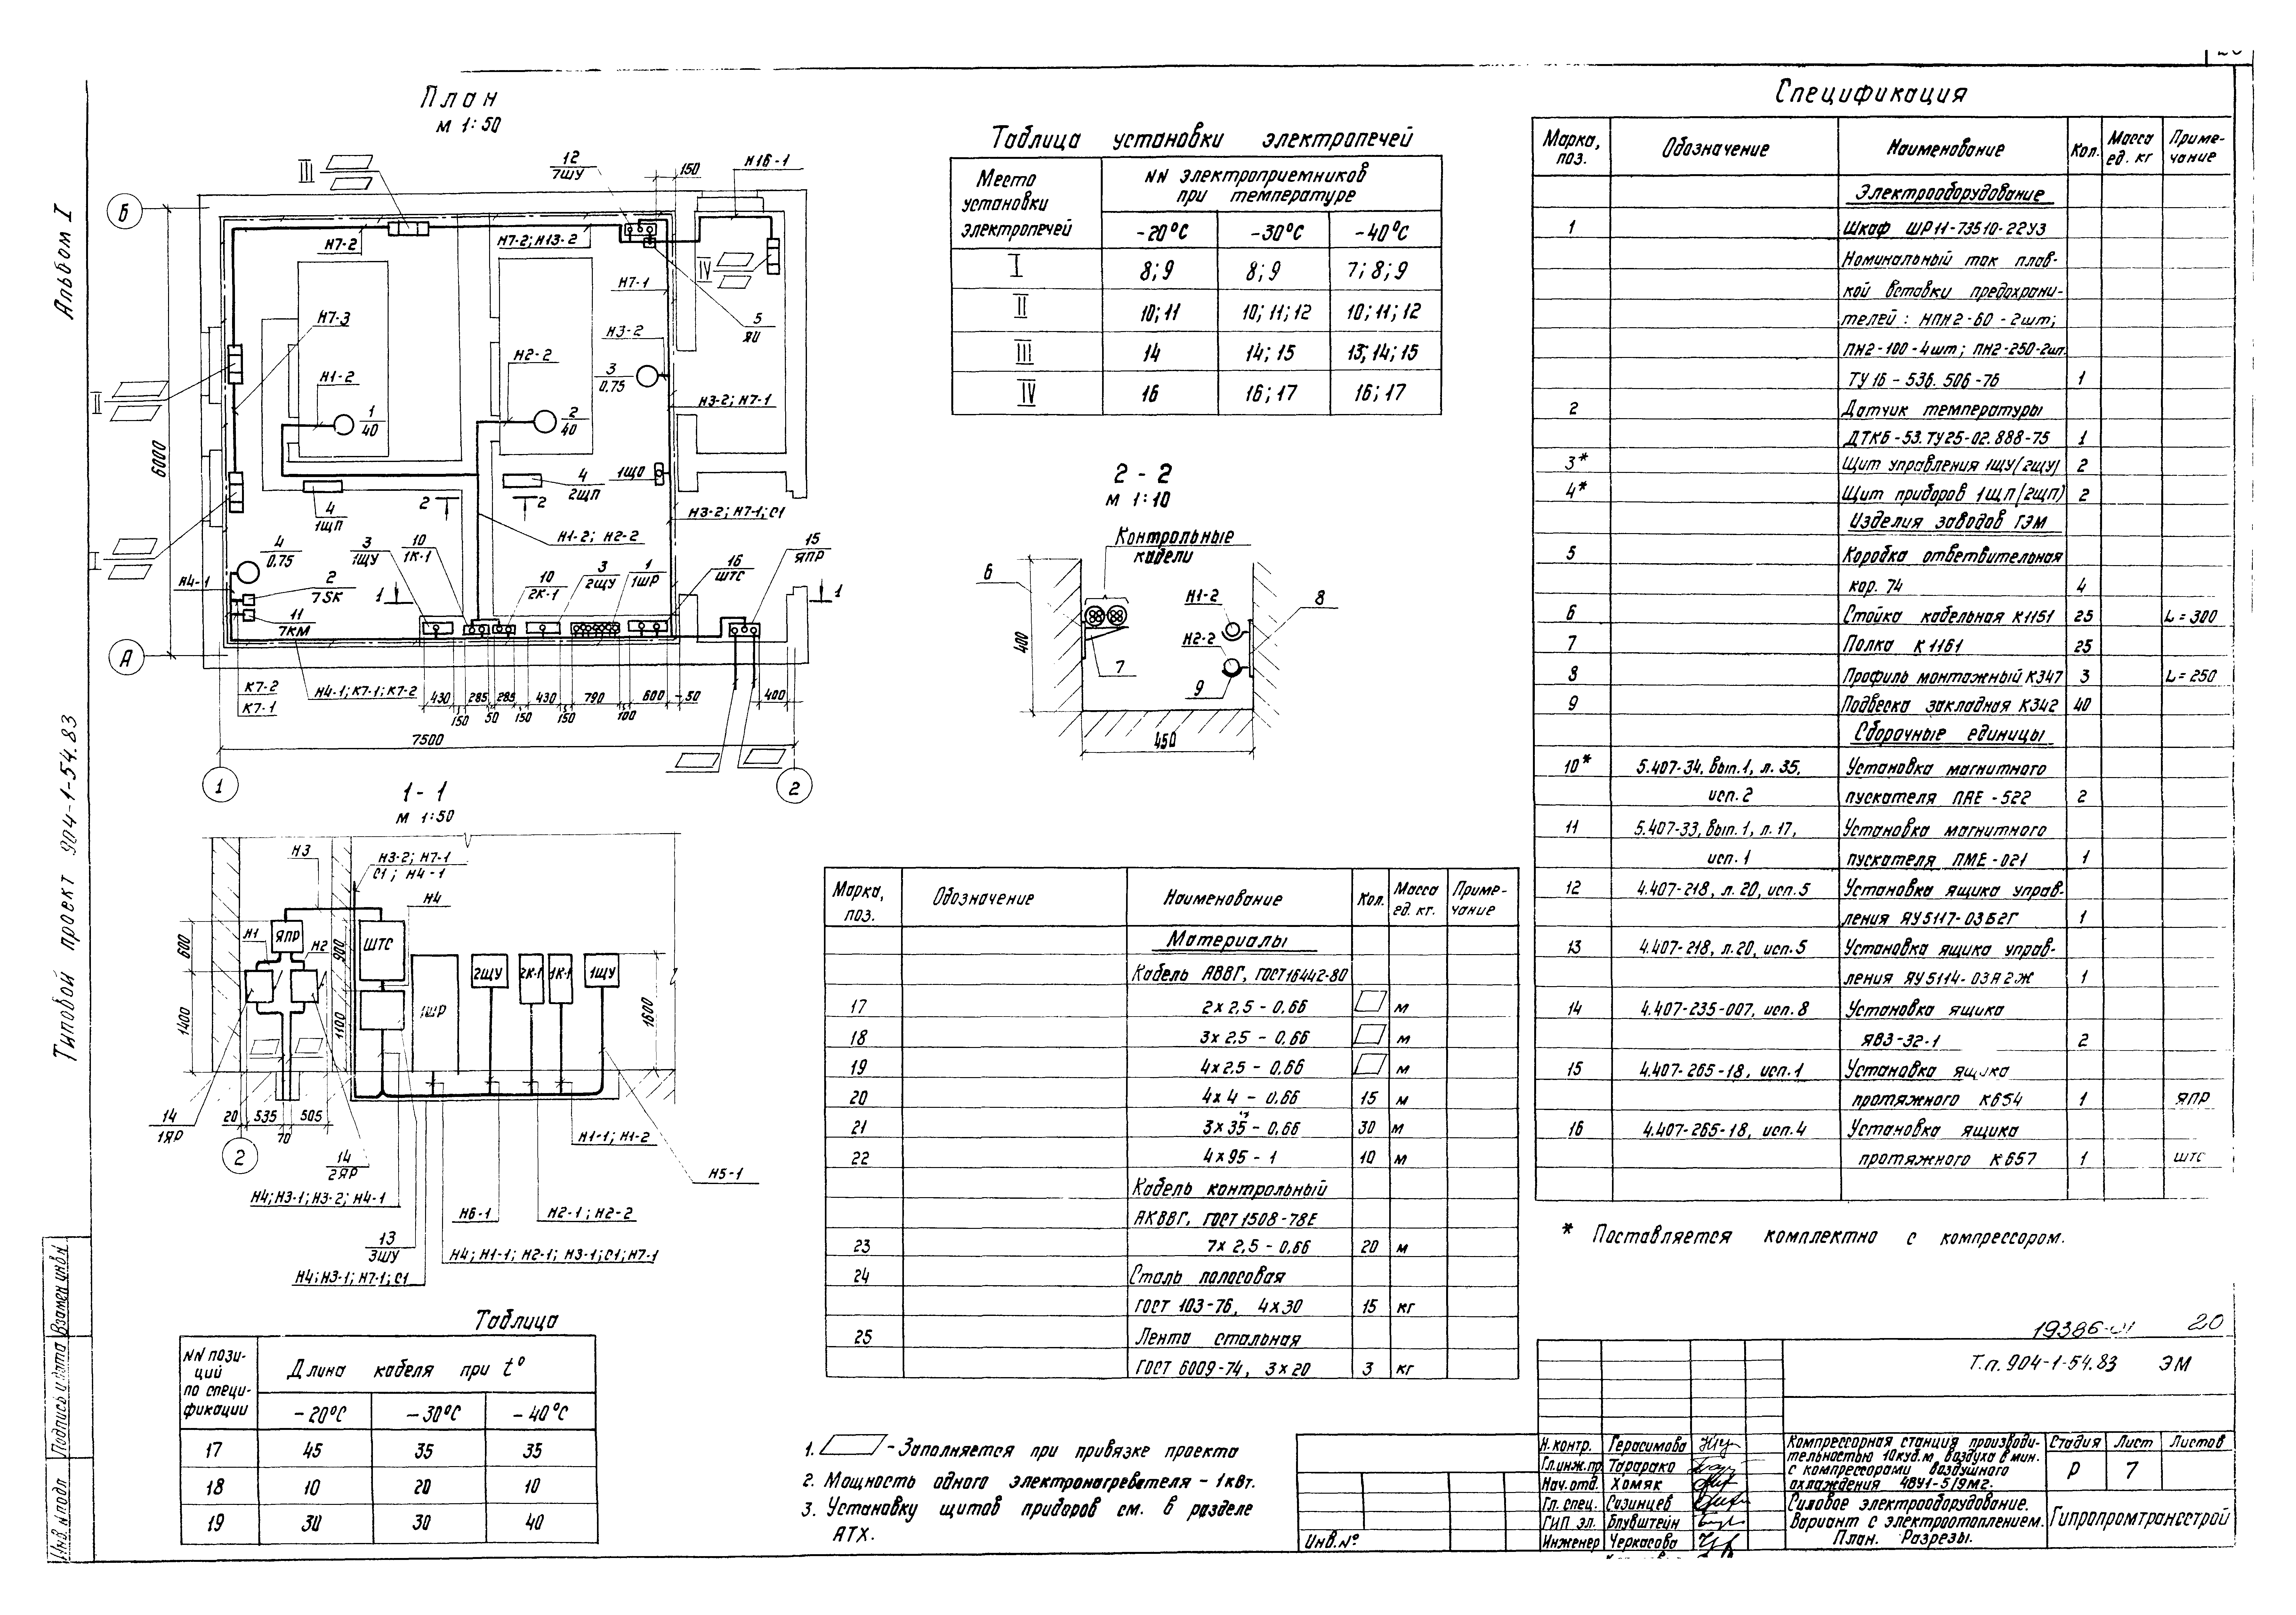 Альбом I
Типовой проект 904-1-54.83
Инв. № подл
Подпись и дата
Взамен инв №
План
М 1:50
III
12
7ЩУ
150
Н16-1
Б
Н7-2
Н7-2; Н13-2
IV
Н7-1
5
ЯЦ
Н7-3
Н3-2
Н1-2
Н2-2
3
0,75
II
Н3-2; Н7-1
1
40
2
40
6000
4
2ЩП
1ЩО
2
2
4
1ЩП
Н3-2; Н7-1; С1
I
4
0,75
3
1ЩУ
10
1К-1
Н1-2; Н2-2
16
ШТС
15
ЯПР
Н4-1
2
7SK
10
2К-1
3
2ЩУ
1
1ШР
1
1
11
7КМ
А
К7-2
К7-1
Н4-1; К7-1; К7-2
430
285
285
430
790
600
50
400
150
50
150
150
100
7500
1
2
1-1
М 1:50
Н3
Н3-2; Н7-1
С1; Н4-1
Н4
ЯПР
Н1
Н2
ШТС
600
900
1400
1100
1ШР
2ЩУ
2К-1
1К-1
1ЩУ
1600
14
1ЯР
20
535
70
505
2
14
2ЯР
Н1-1; Н1-2
Н5-1
Н4; Н3-1; Н3-2; Н4-1
Н6-1
Н2-1; Н2-2
13
3ЩУ
Н4; Н1-1; Н2-1; Н3-1; С1; Н7-1
Н4; Н3-1; Н7-1; С1
Таблица
NN пози-
ций
по специ-
фикации
Длина кабеля при t°
-20°С -30°С -40°С
17 45 35 35
18 10 20 10
19 30 30 40
Таблица установки электропечей
Место
установки
электропечей
NN электроприемников
при температуре
-20°С -30°С -40°С
I 8; 9 8; 9 7; 8; 9
II 10; 11 10; 11; 12 10; 11; 12
III 14 14; 15 13; 14; 15
IV 16 16; 17 16; 17
2-2
М 1:10
Контрольные
кабели
6
400
Н1-2
8
Н2-2
7
9
450
Марка,
поз.
Обозначение
Наименование
Кол.
Масса
ед. кг.
Приме-
чание
Материалы
Кабель АВВГ, ГОСТ 16442-80
17 2х2,5 - 0,66 м
18 3х2,5 - 0,66 м
19 4х2,5 - 0,66 м
20 4х4 - 0,66 15 м
21 3х35 - 0,66 30 м
22 4х95 - 1 10 м
Кабель контрольный
АКВВГ, ГОСТ 1508-78Е
23 7х2,5 - 0,66 20 м
24 Сталь полосовая
ГОСТ 103-76, 4х30 15 кг
25 Лента стальная
ГОСТ 6009-74, 3х20 3 кг
1. - Заполняется при привязке проекта
2. Мощность одного электронагревателя - 1кВт.
3. Установку щитов приборов см. в разделе
АТХ.
Спецификация
Марка,
поз.
Обозначение
Наименование
Кол.
Масса
ед. кг
Приме-
чание
Электрооборудование
1 Шкаф ШР11-73510-22У3
Номинальный ток плав-
кой вставки предохрани-
телей: НПН2-60 - 2шт;
ПН2-100-4шт; ПН2-250-2шт.
ТУ16-536.506-76 1
2 Датчик температуры
ДТКБ-53. ТУ25-02.888-75 1
3* Щит управления 1ЩУ(2ЩУ) 2
4* Щит приборов 1ЩП(2ЩП) 2
Изделия заводов ГЭМ
5 Коробка ответвительная
кор. 74 4
6 Стойка кабельная К1151 25 L=300
7 Полка К1161 25
8 Профиль монтажный К347 3 L=250
9 Подвеска закладная К342 40
Сборочные единицы
10* 5.407-34, вып.1, л.35, Установка магнитного
исп.2 пускателя ПАЕ-522 2
11 5.407-33, вып.1, л.17, Установка магнитного
исп.1 пускателя ПМЕ-021 1
12 4.407-218, л.20, исп.5 Установка ящика управ-
ления ЯУ5117-03Б2Г 1
13 4.407-218, л.20, исп.5 Установка ящика управ-
ления ЯУ5114-03А2Ж 1
14 4.407-235-007, исп.8 Установка ящика
ЯВЗ-32-1 2
15 4.407-265-18, исп.1 Установка ящика
протяжного К654 1 ЯПР
16 4.407-265-18, исп.4 Установка ящика
протяжного К657 1 ШТС
* Поставляется комплектно с компрессором.
19386-01 20
Т.п. 904-1-54.83 ЭМ
Н.контр. Герасимова
Гл.инж.пр. Тарарако
Нач.отд. Хомяк
Гл. спец. Сазинцев
ГИП эл. Блувштейн
Инженер Черкасова
Инв.№
Компрессорная станция производи-
тельностью 10куб.м. воздуха в мин.
с компрессорами воздушного
охлаждения 4ВУ1-5/9М2.
Стадия Лист Листов
Р 7
Силовое электрооборудование.
Вариант с электроотоплением.
План. Разрезы.
Гипропромтрансстрой